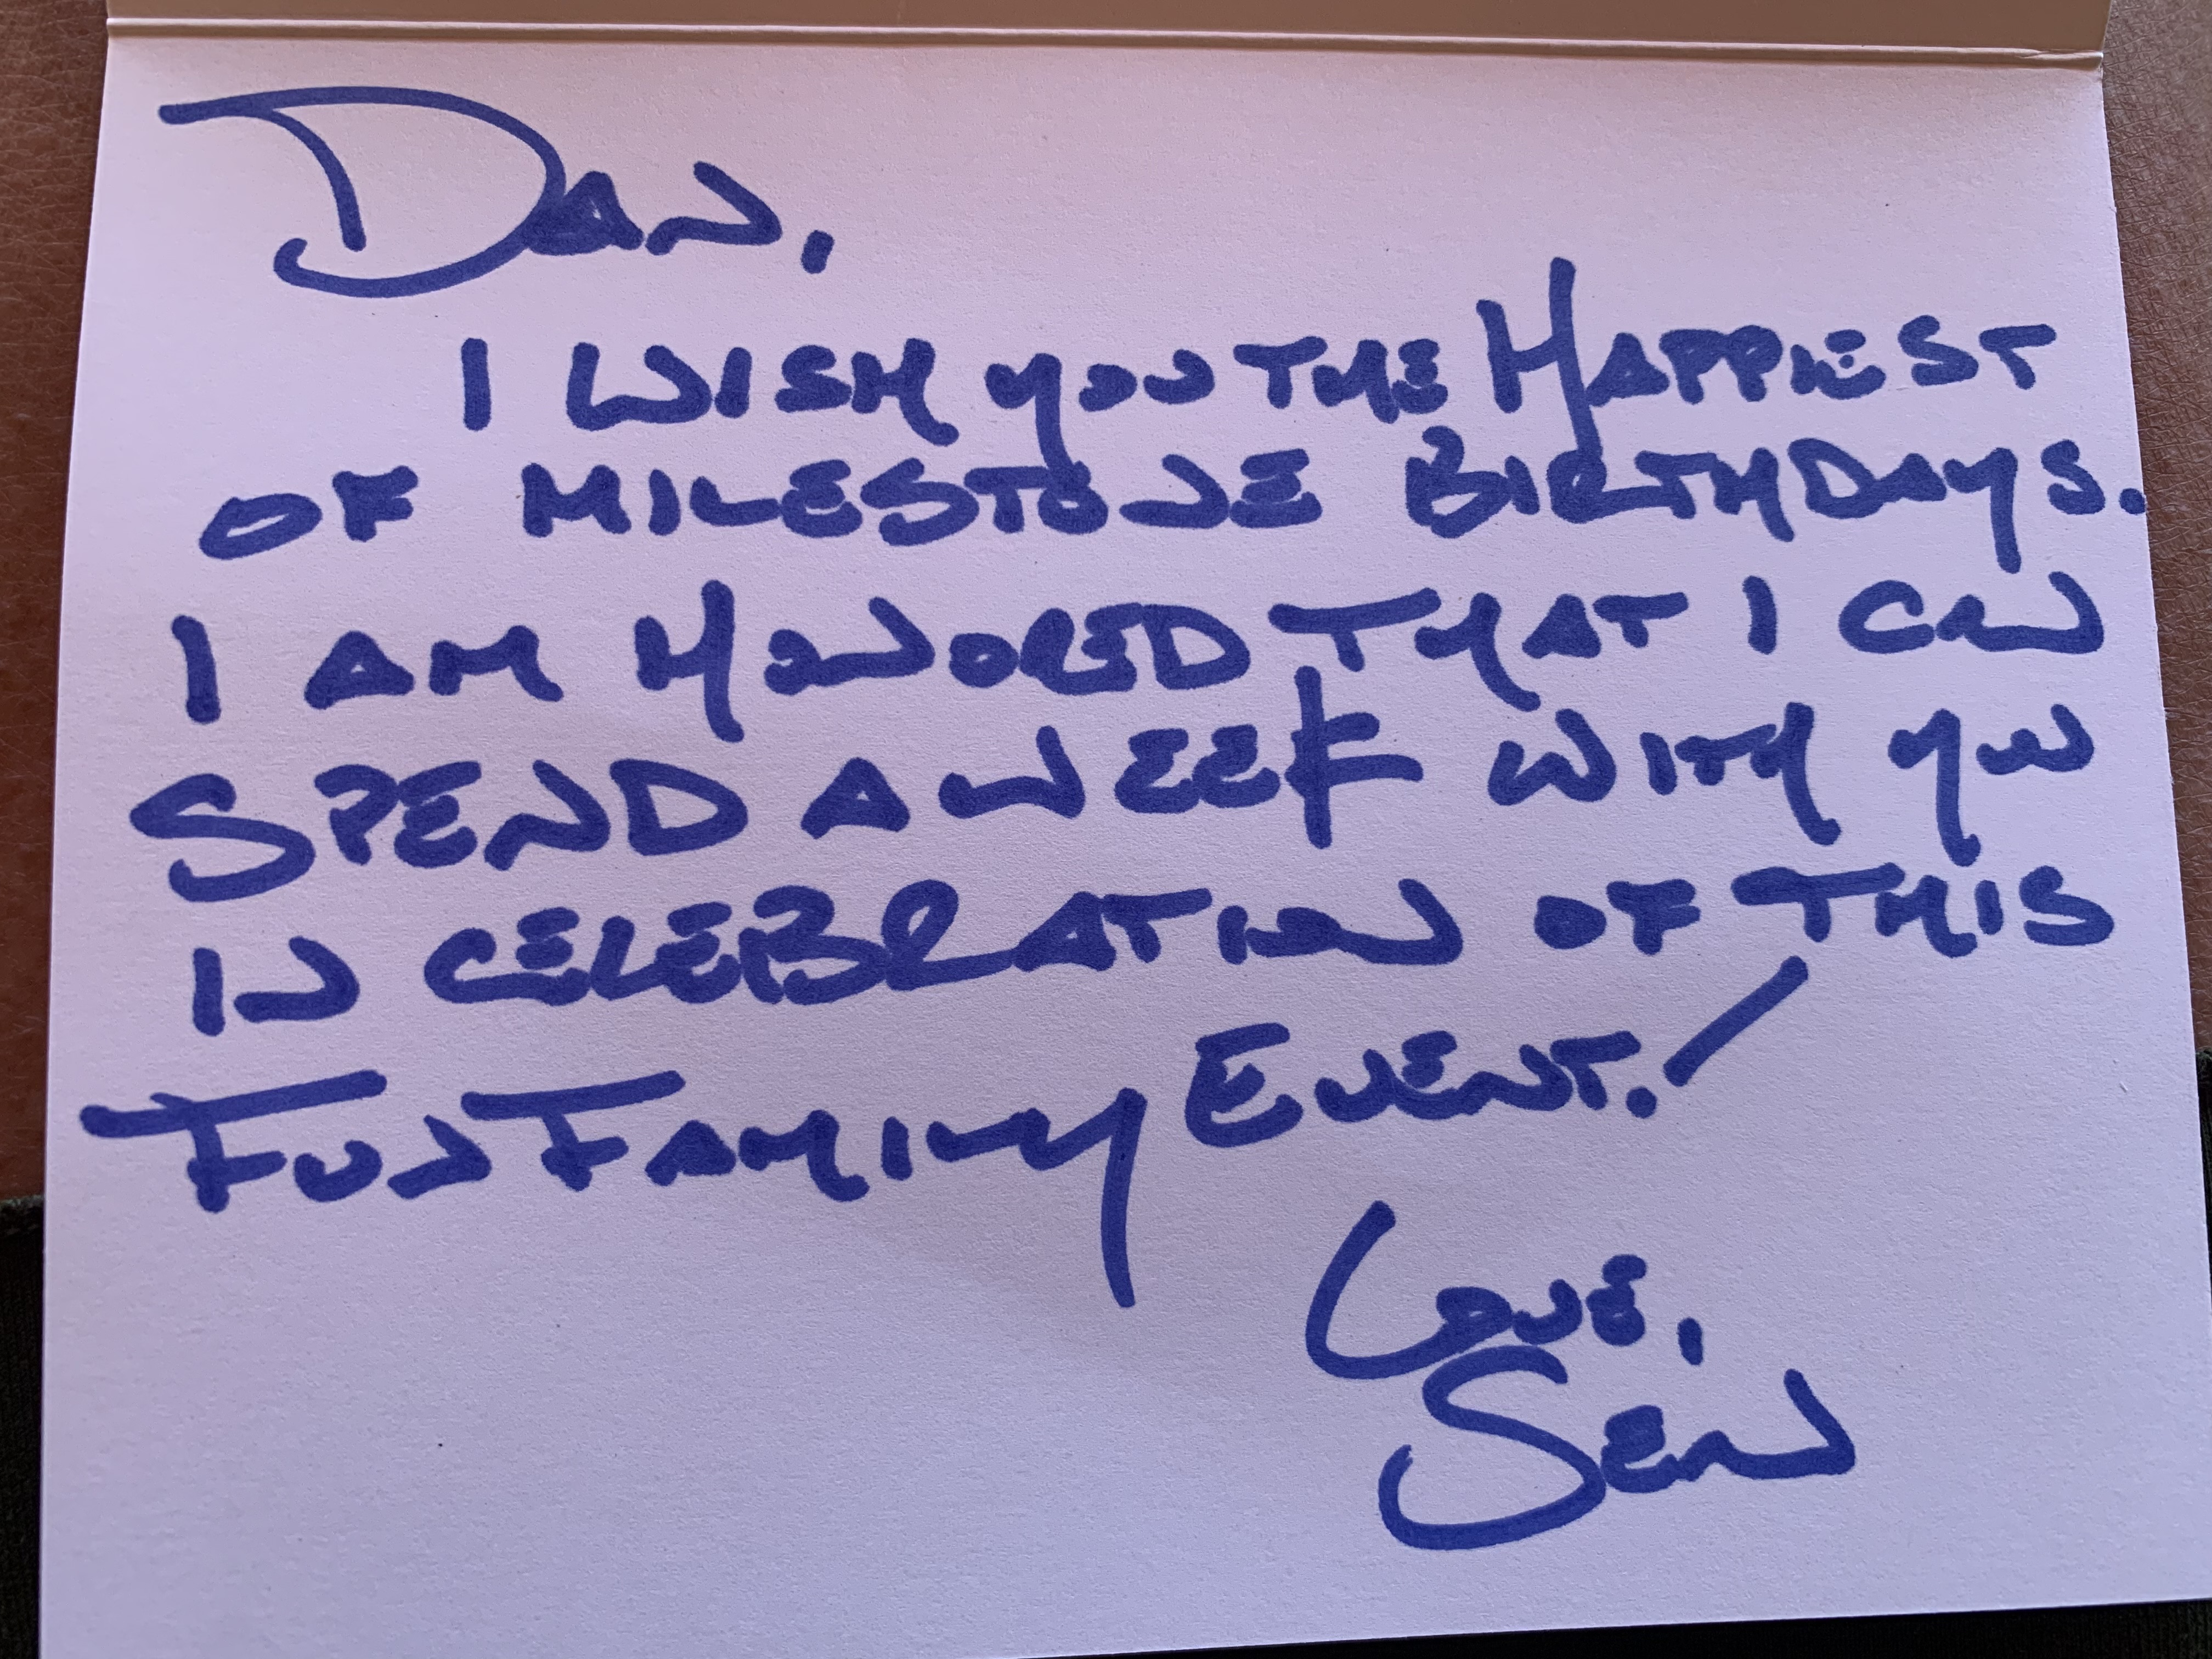 Dan,
I WISH YOU THE HAPPIEST
OF MILESTONE BIRTHDAYS.
I AM HONORED THAT I CAN
SPEND A WEEK WITH YOU
IN CELEBRATION OF THIS
FUN FAMILY EVENT!
LOVE,
SEN